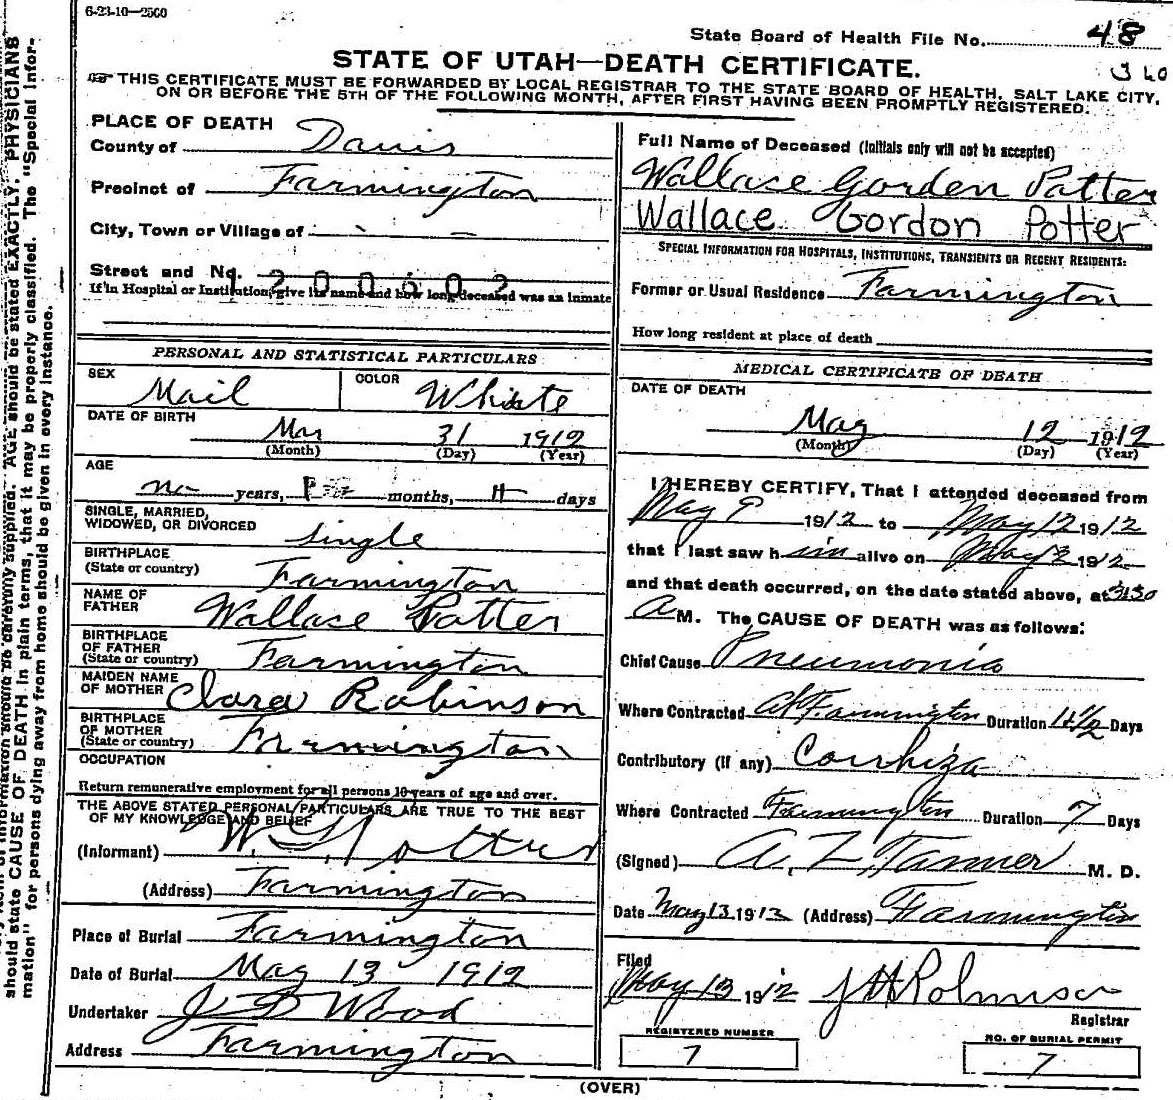 6-23-10—2500
State Board of Health File No. 48
STATE OF UTAH—DEATH CERTIFICATE.
THIS CERTIFICATE MUST BE FORWARDED BY LOCAL REGISTRAR TO THE STATE BOARD OF HEALTH, SALT LAKE CITY,
ON OR BEFORE THE 5TH OF THE FOLLOWING MONTH, AFTER FIRST HAVING BEEN PROMPTLY REGISTERED.
PLACE OF DEATH
County of Davis
Precinct of Farmington
City, Town or Village of
Street and No.
1200602
If in Hospital or Institution, give its name and how long deceased was an inmate
PERSONAL AND STATISTICAL PARTICULARS
SEX Mail COLOR White
DATE OF BIRTH
Mar 31 1912
(Month) (Day) (Year)
AGE
no years, months, 11 days
SINGLE, MARRIED,
WIDOWED, OR DIVORCED Single
BIRTHPLACE
(State or country) Farmington
NAME OF
FATHER Wallace Potter
BIRTHPLACE
OF FATHER
(State or country) Farmington
MAIDEN NAME
OF MOTHER Clara Robinson
BIRTHPLACE
OF MOTHER
(State or country) Farmington
OCCUPATION
Return remunerative employment for all persons 10 years of age and over.
THE ABOVE STATED PERSONAL PARTICULARS ARE TRUE TO THE BEST
OF MY KNOWLEDGE AND BELIEF
(Informant) W. G. Potter
(Address) Farmington
Place of Burial Farmington
Date of Burial May 13 1912
Undertaker J D Wood
Address Farmington
Full Name of Deceased (Initials only will not be accepted)
Wallace Gorden Potter
Wallace Gordon Potter
SPECIAL INFORMATION FOR HOSPITALS, INSTITUTIONS, TRANSIENTS OR RECENT RESIDENTS:
Former or Usual Residence Farmington
How long resident at place of death
MEDICAL CERTIFICATE OF DEATH
DATE OF DEATH
May 12 1912
(Month) (Day) (Year)
I HEREBY CERTIFY, That I attended deceased from
May 9 1912 to May 12 1912
that I last saw him alive on May 1912
and that death occurred, on the date stated above, at 3:30
A M. The CAUSE OF DEATH was as follows:
Chief Cause Pneumonia
Where Contracted At Farmington Duration Days
Contributory (if any) Corrhiza
Where Contracted Farmington Duration 7 Days
(Signed) A. Z. Tanner M. D.
Date May 13 1912 (Address) Farmington
Filed
May 13 1912 J H Robinson
Registrar
REGISTERED NUMBER
7
NO. OF BURIAL PERMIT
7
(OVER)
AGE should be stated EXACTLY. PHYSICIANS
should state CAUSE OF DEATH in plain terms, that it may be properly classified. The "Special Infor-
mation" for persons dying away from home should be given in every instance.